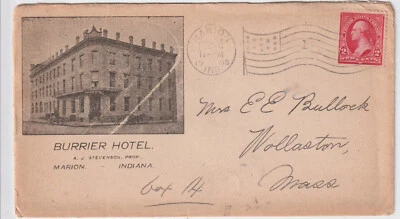 BURRIER HOTEL.
A. J. STEVENSON, PROP.
MARION, - INDIANA.
MARION
IND.
Mrs E E Bullock
Wollaston
Mass
box 14
2 TWO CENTS 2